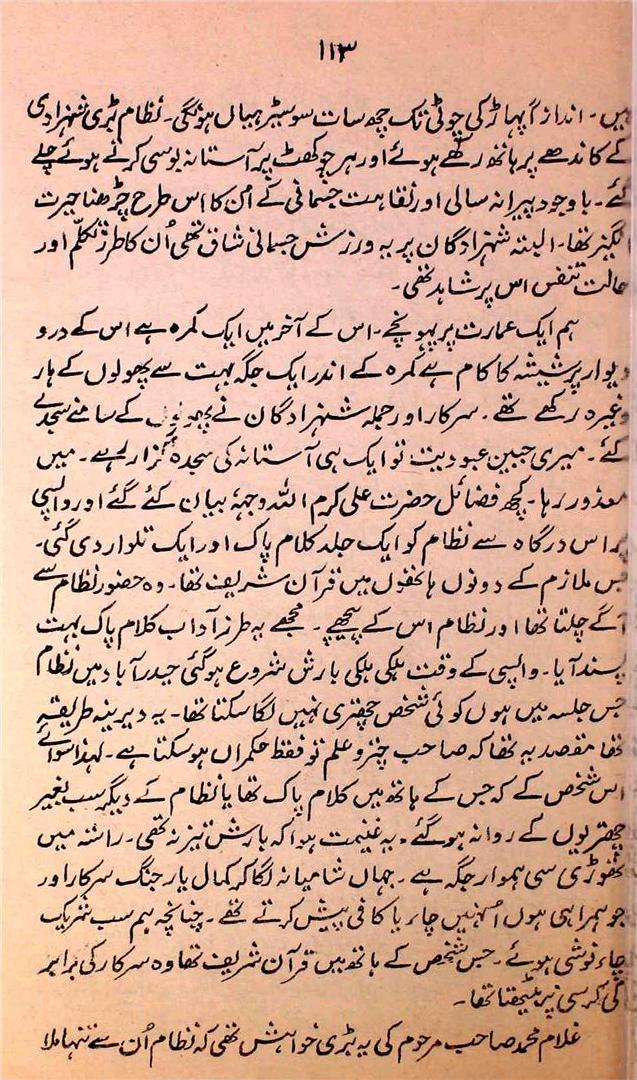 ۱۱۳
ہیں۔ اندازاً پہاڑ کی چوٹی تک چھ سات سو سیڑہیاں ہونگی۔ نظام بڑی شہزادی
کے کاندھے پر ہاتھ رکھے ہوئے اور ہر چوکھٹ پر آستانہ بوسی کرتے ہوئے چلے
گئے۔ باوجود پیرانہ سالی اور نقاہت جسمانی کے اُن کا اس طرح چڑھنا حیرت
انگیز تھا۔ البتہ شہزادگان پر یہ ورزش جسمانی شاق تھی اُن کا طرز تکلّم اور
حالت تنفس اس پر شاہد تھی۔
ہم ایک عمارت پر پہونچے۔ اس کے آخر میں ایک کمرہ ہے اس کے در و
دیوار پر شیشہ کا کام ہے کمرہ کے اندر ایک جگہ بہت سے پھولوں کے ہار
وغیرہ رکھے تھے۔ سرکار اور جملہ شہزادگان نے پھولوں کے سامنے سجدے
کئے۔ میری جبین عبودیت تو ایک ہی آستانہ کی سجدہ گزار ہے۔ میں
معذور رہا۔ کچھ فضائل حضرت علی کرم اللہ وجہہٗ بیان کئے گئے اور واپسی
پر اس درگاہ سے نظام کو ایک جلد کلام پاک اور ایک تلوار دی گئی۔
جس ملازم کے دونوں ہاتھوں میں قرآن شریف تھا۔ وہ حضور نظام سے
آگے چلتا تھا اور نظام اس کے پیچھے۔ مجھے یہ طرز آداب کلام پاک بہت
پسند آیا۔ واپسی کے وقت ہلکی ہلکی بارش شروع ہو گئی حیدرآباد میں نظام
جس جلسہ میں ہوں کوئی شخص چھتری نہیں لگا سکتا تھا۔ یہ دیرینہ طریقہ
تھا مقصد یہ تھا کہ صاحب چتر و علم تو فقط حکمراں ہو سکتا ہے۔ لہذا سوائے
اس شخص کے کہ جس کے ہاتھ میں کلام پاک تھا یا نظام کے دیگر سب بغیر
چھتریوں کے روانہ ہو گئے۔ یہ غنیمت ہوا کہ بارش تیز نہ تھی۔ راستہ میں
تھوڑی سی ہموار جگہ ہے۔ جہاں شامیانہ لگا کر کمال یار جنگ سرکار اور
جو ہمراہی ہوں اُنہیں چاء یا کافی پیش کرتے تھے۔ چنانچہ ہم سب شریک
چاء نوشی ہوئے۔ جس شخص کے ہاتھ میں قرآن شریف تھا وہ سرکار کی برابر
کی کرسی پر بیٹھتا تھا۔
غلام محمد صاحب مرحوم کی یہ بڑی خواہش تھی کہ نظام اُن سے تنہا ملا